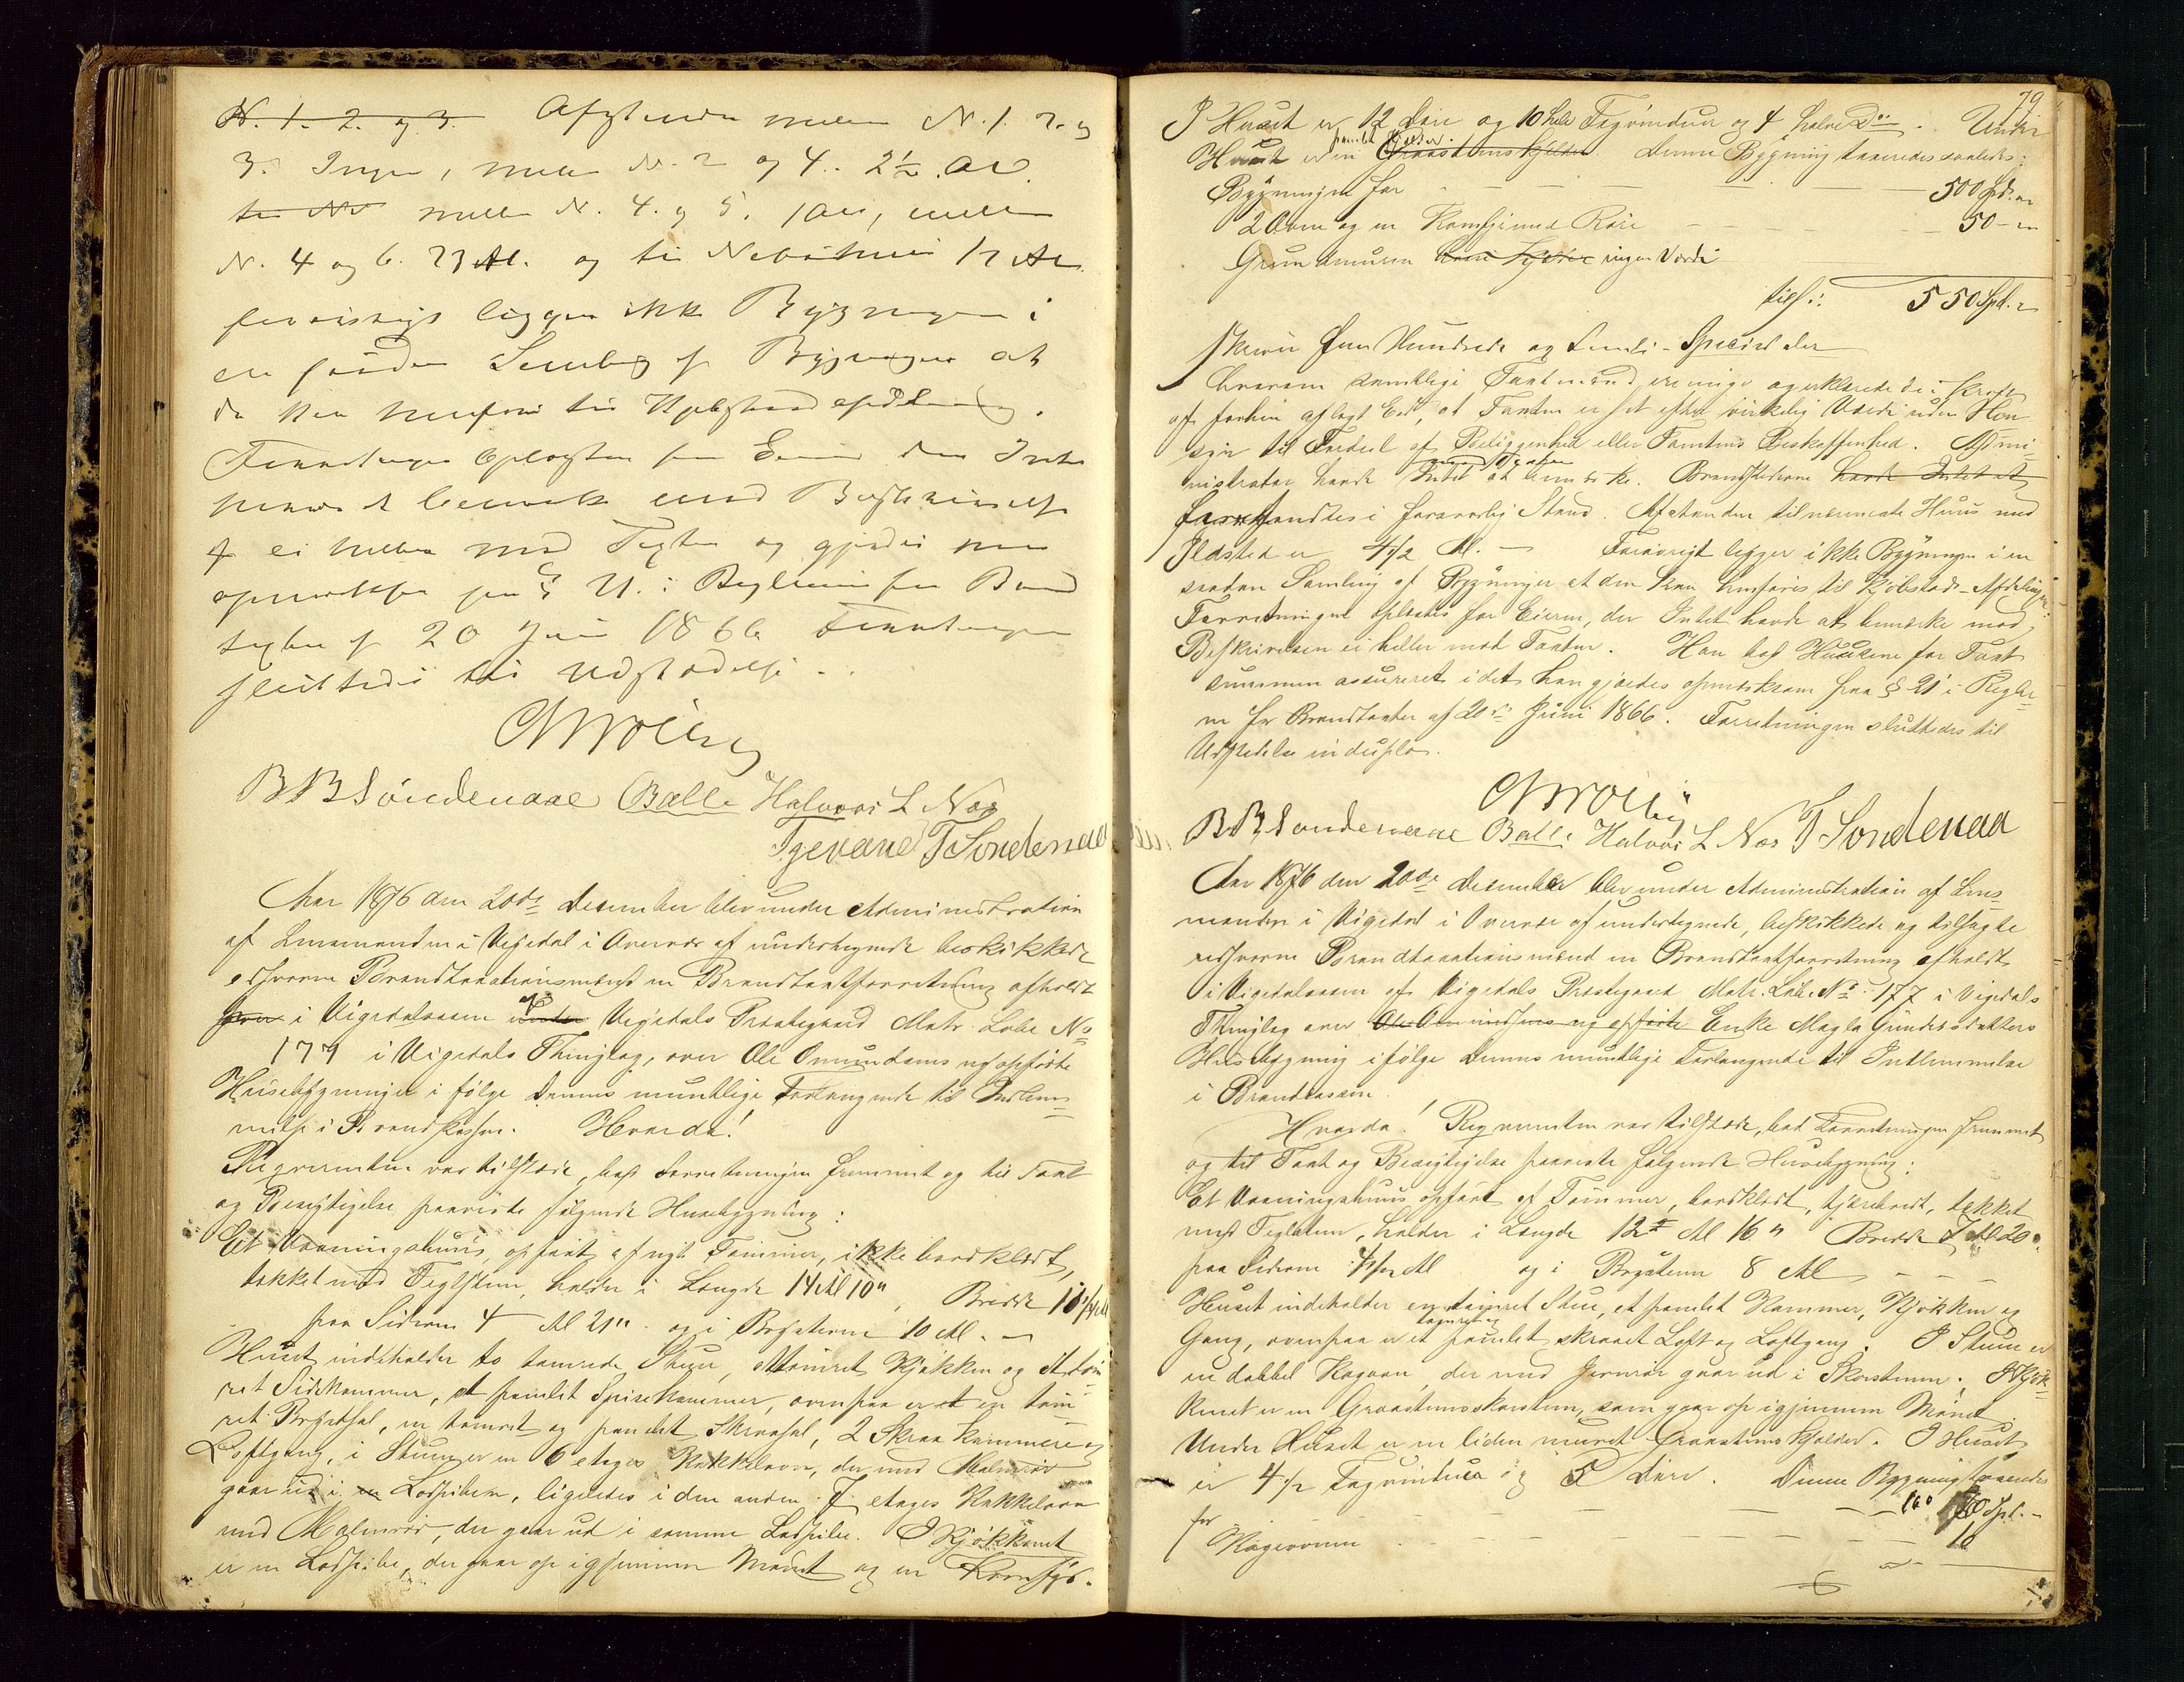 N. 1. 2. og 3. Afstanden mellem N. 1. 2. og
3. Ingen, mellem N. 2 og 4. 2½ Al.
til No mellem N. 4. og 5. 1 Al, mellem
N. 4 og 6. 23 Al. og til Nabohus 12 Al.
forøvrigt ligger ikke Bygningen i
en saadan Samling af Bygninger at
de kan henføres til Kjøbstadafdeling.
Forretningen oplæstes for Eieren der Intet
havde at bemærke mod Beskrivelsen
ei heller mod Taxten og gjordes man
opmærksom paa § 21 i Reglerne for Brand
taxter af 20 Juni 1866 Forretningen
sluttedes til Udstædelse.
B B Söndenaae Balle Halvor L Næs
Tjerane T Söndenaa
Aar 1876 den 20de December blev under Administration
af Lensmanden i Vigedal i Overvær af undertegnede beskikkede
edsvorne Brandtaxationsmænd en Brandtaxtforretning afholdt
paa i Vigedalsaasen under af Vigedals Præstegaard Matr. Løbe No
177 i Vigedals Thinglag, over Ole Omundsens nyopførte
Husebygninger i følge Dennes mundtlige Forlangende til Indlem-
melse i Brandkassen. Hvorda!
Reqvirenten var tilstede, bad Forretningen fremmet og til Taxt
og Besigtigelse paaviste følgende Husebygning:
Et Vaaningshuus, opført af nyt Tømmer, ikke bordklædt,
tækket med Teglsten, holder i Længde 14 Al 10", Bredde 10 ¼ Al
paa Siderne 4 Al 21" og i Brysterne 10 Al. —
Huset indeholder to tømrede Stuer, et tømret Kjøkken og et töm-
ret Sidekammer, et panelet Spisekammer, ovenpaa er et en töm-
ret Brystsal, en tømret og panelet Skraasal, 2 Skraakammere og
Loftgang, i Stuen er en 6 etages Kakkelovn, der med Malmrör
gaar ud i en Lodpiben, ligeledes i den anden 7 etages Kakkelovn
med Malmrör, der gaar ud i samme Lodpibe. I Kjøkkenet
er en Lodpibe, der gaar op igjennem Mönet og en Komfyr.
79
I Huset er 12 Döre og 10 hele Fagvinduer og 4 halve Do. Under
Huset er en Graastenskjelder panelet Kjelder. Denne Bygning taxeredes saaledes:
Bygningen for — 500 Spd. "
2 Ovne og en Komfyr med Röre — 50 - "
Grundmuren havde Synlig ingen Værdi
tils: 550 Spd. "
skriver Fem Hundrede og femti Speciedaler
hvorom samtlige Taxtmænd ere enige og erklærede de i Kraft
af forhen aflagt Eed, at Taxten er sat efter virkelig Værdi uden Hen-
syn til Fordeel af Beliggenhed eller Tomtens Beskaffenhed. Admi-
nistrator havde Intet mod Taxten at bemærke. Brandstederne havde Intet at
fandtes i forsvarlig Stand. Afstanden til nærmeste Huus med
Ildsted er 4½ Al. — Forøvrigt ligger ikke Bygningen i en
saadan Samling af Bygninger at den kan henføres til Kjøbstads-Afdelingen.
Forretningen oplæstes for Eieren, der Intet havde at bemærke mod
Beskrivelsen ei heller mod Taxten. Han bad Husene for Taxt
summen assureret idet han gjordes opmærksom paa § 21 i Regler-
ne for Brandtaxter af 20de Juni 1866. Forretningen sluttedes til
Udstedelse in duplo.
B B Söndenaae Balle Halvor L Næs T Söndenaa
Aar 1876 den 20de December blev under Administration af Lens-
manden i Vigedal i Overvær af undertegnede, beskikkede og tilsagte
edsvorne Brandtaxationsmænd en Brandtaxtforretning afholdt
i Vigedalsaasen af Vigedals Præstegaard Matr. Løbe No 177 i Vigedals
Thinglag over Ole Omundsens og opførte Enke Magla Gundersdatters
Husebygning ifølge Dennes mundtlige Forlangende til Indlemmelse
i Brandkassen.
Hvorda! Reqvirenten var tilstede, bad Forretningen fremmet
og til Taxt og Besigtigelse paaviste følgende Husebygning:
Et Vaaningshuus opført af Tömmer, bordklædt, tjærebredt, tækket
med Teglsten, holder i Længde 12 Al 16" Bredde 7 Al 20".
paa Siderne 4½ Al og i Brysterne 8 Al — — —
Huset indeholder en tømret Stue, et panelet Kammer, Kjøkken og
Gang, ovenpaa er et tømret og panelet skraaet Loft og Loftgang. I Stuen er
en dobbel Kogovn, der med Jernrör gaar ud i Skorstenen. I Kjök-
kenet er en Graastensskorsten, som gaar op igjennem Mönet.
Under Huset er en liden muret Graastens Kjelder. I Huset
er 4½ Fagvinduer og 5 Döre. Denne Bygning taxeredes
for — 160 Spd. -
Kogeovnen — 10